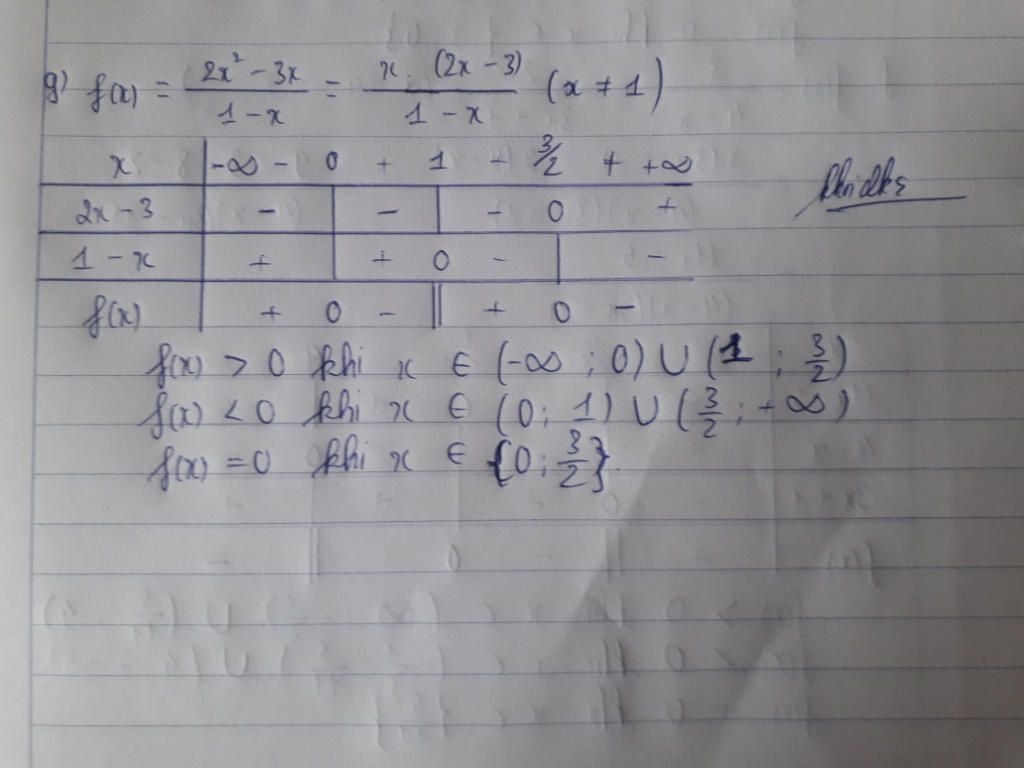 g) f(x) = 2x² - 3x / 1 - x = x. (2x - 3) / 1 - x (x ≠ 1)
x -∞ - 0 + 1 + 3/2 + +∞
2x - 3 - - - 0 +
1 - x + + 0 - -
f(x) + 0 - || + 0 -
f(x) > 0 khi x ∈ (-∞ ; 0) ∪ (1 ; 3/2)
f(x) < 0 khi x ∈ (0 ; 1) ∪ (3/2 ; +∞)
f(x) = 0 khi x ∈ {0 ; 3/2}.